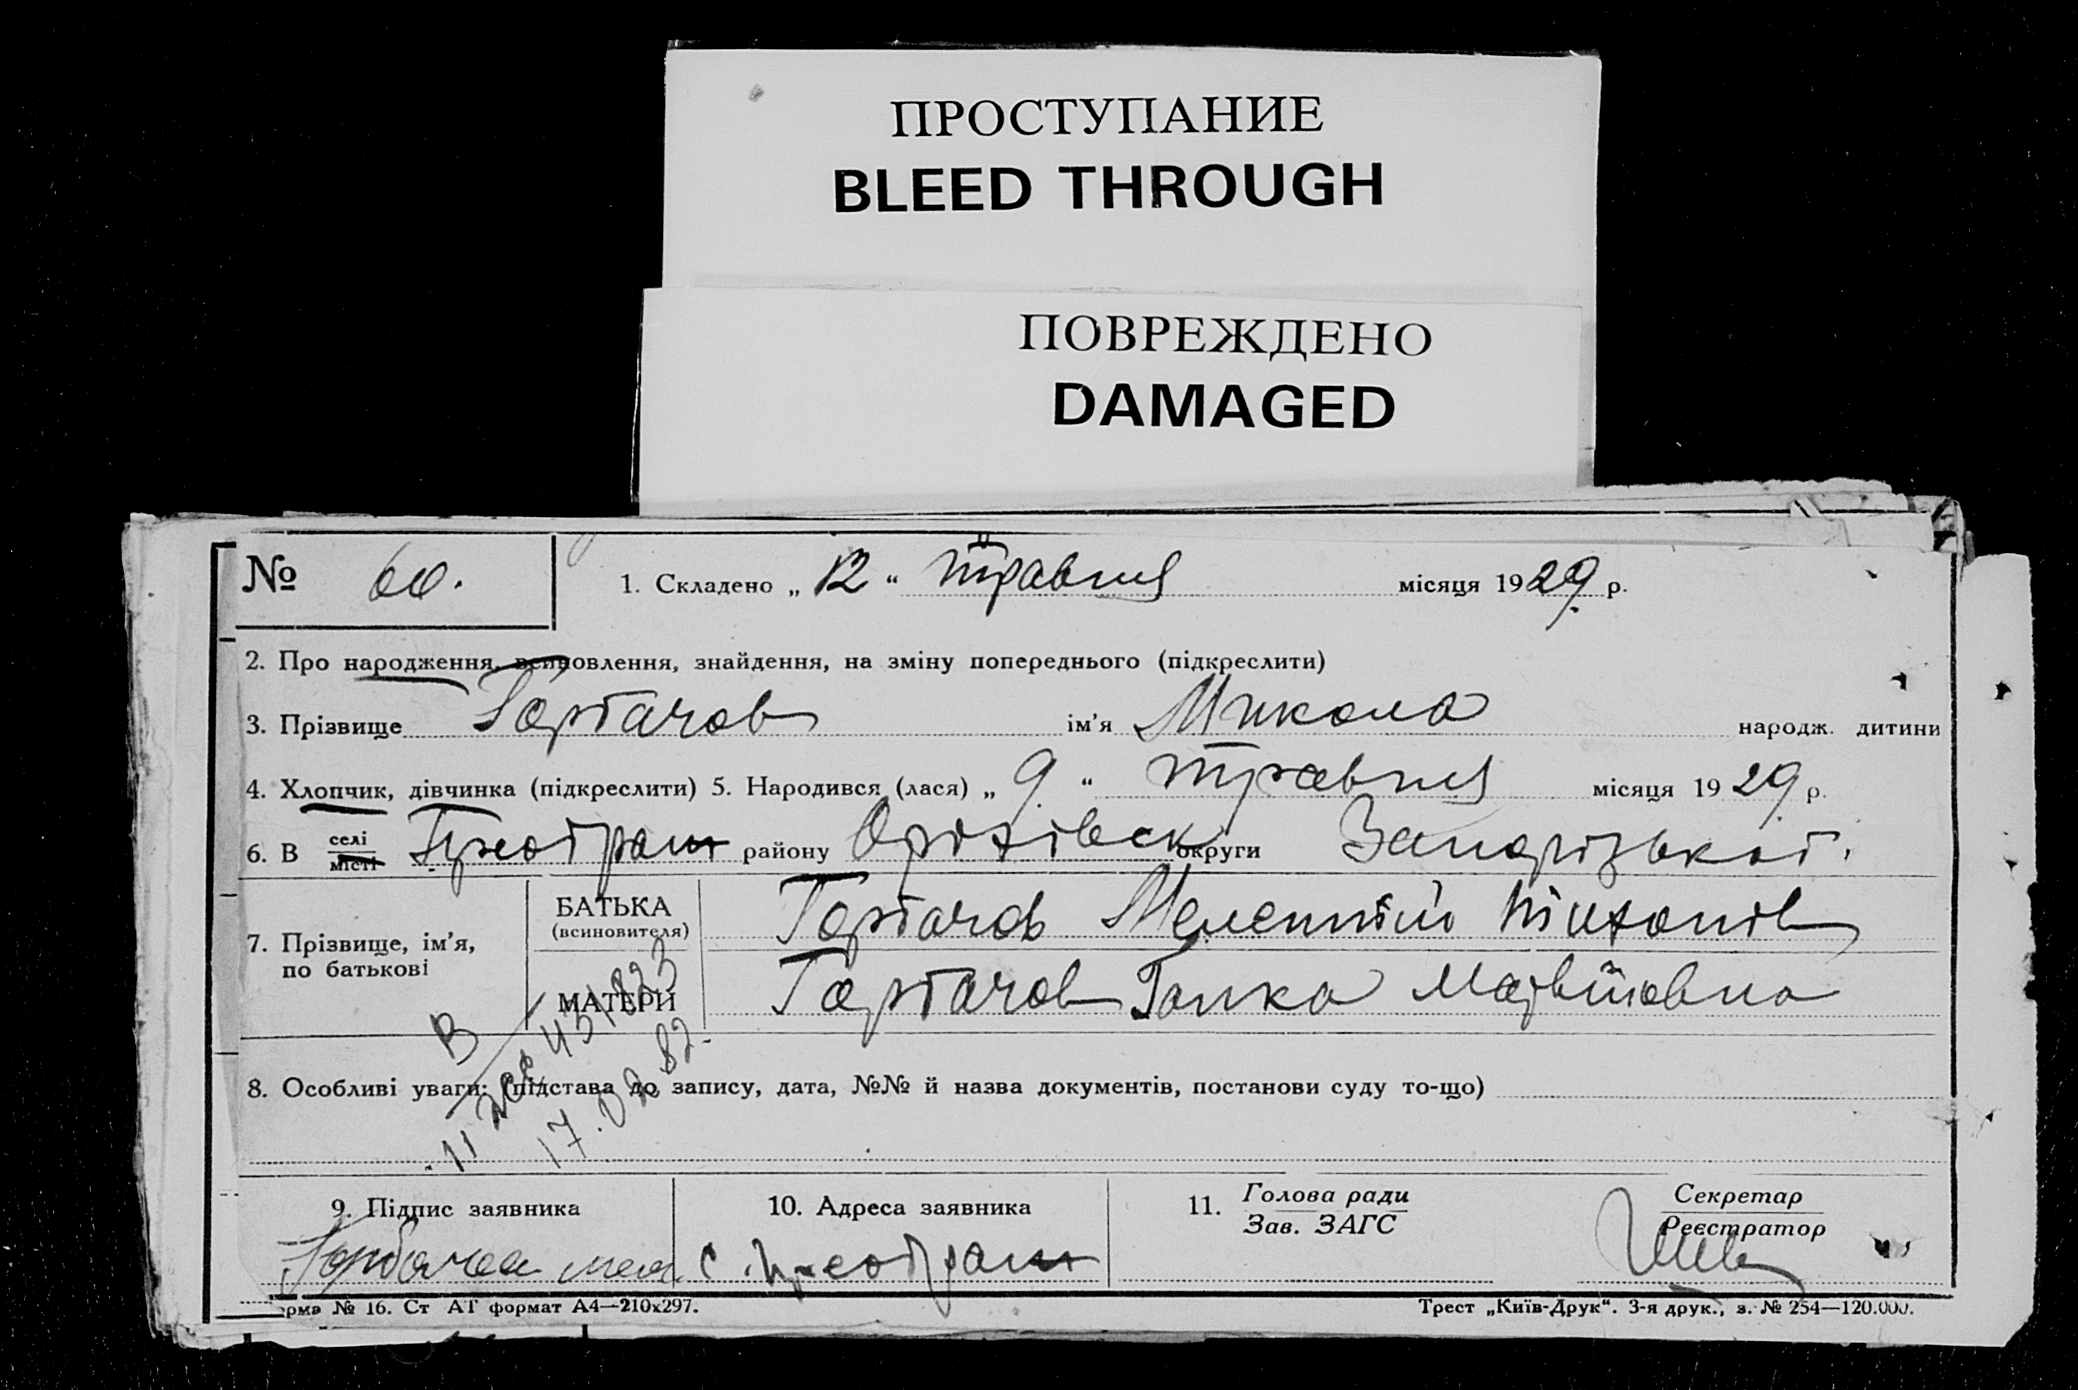 ПРОСТУПАНИЕ
BLEED THROUGH
ПОВРЕЖДЕНО
DAMAGED
№ 60.
1. Складено „ 12 “ травня місяця 1929 р.
2. Про народження, всиновлення, знайдення, на зміну попереднього (підкреслити)
3. Прізвище Горбачов ім'я Микола народж. дитини
4. Хлопчик, дівчинка (підкреслити) 5. Народився (лася) „ 9 “ травня місяця 1929 р.
6. В селі місті Преображ району Оріхівськ округи Запорізької.
7. Прізвище, ім'я, по батькові
БАТЬКА (всиновителя) Горбачов Мелентій Тихонів
МАТЕРИ Горбачов Ганка Матвіївна
В
11 431823
17.02.82.
8. Особливі уваги: (підстава до запису, дата, №№ й назва документів, постанови суду то-що)
9. Підпис заявника
Горбачев мел
10. Адреса заявника
с. Преображ
11. Голова ради
Зав. ЗАГС
Секретар
Реєстратор
орма № 16. Ст АТ формат А4—210х297.
Трест „Київ-Друк“. 3-я друк., з. № 254—120.000.